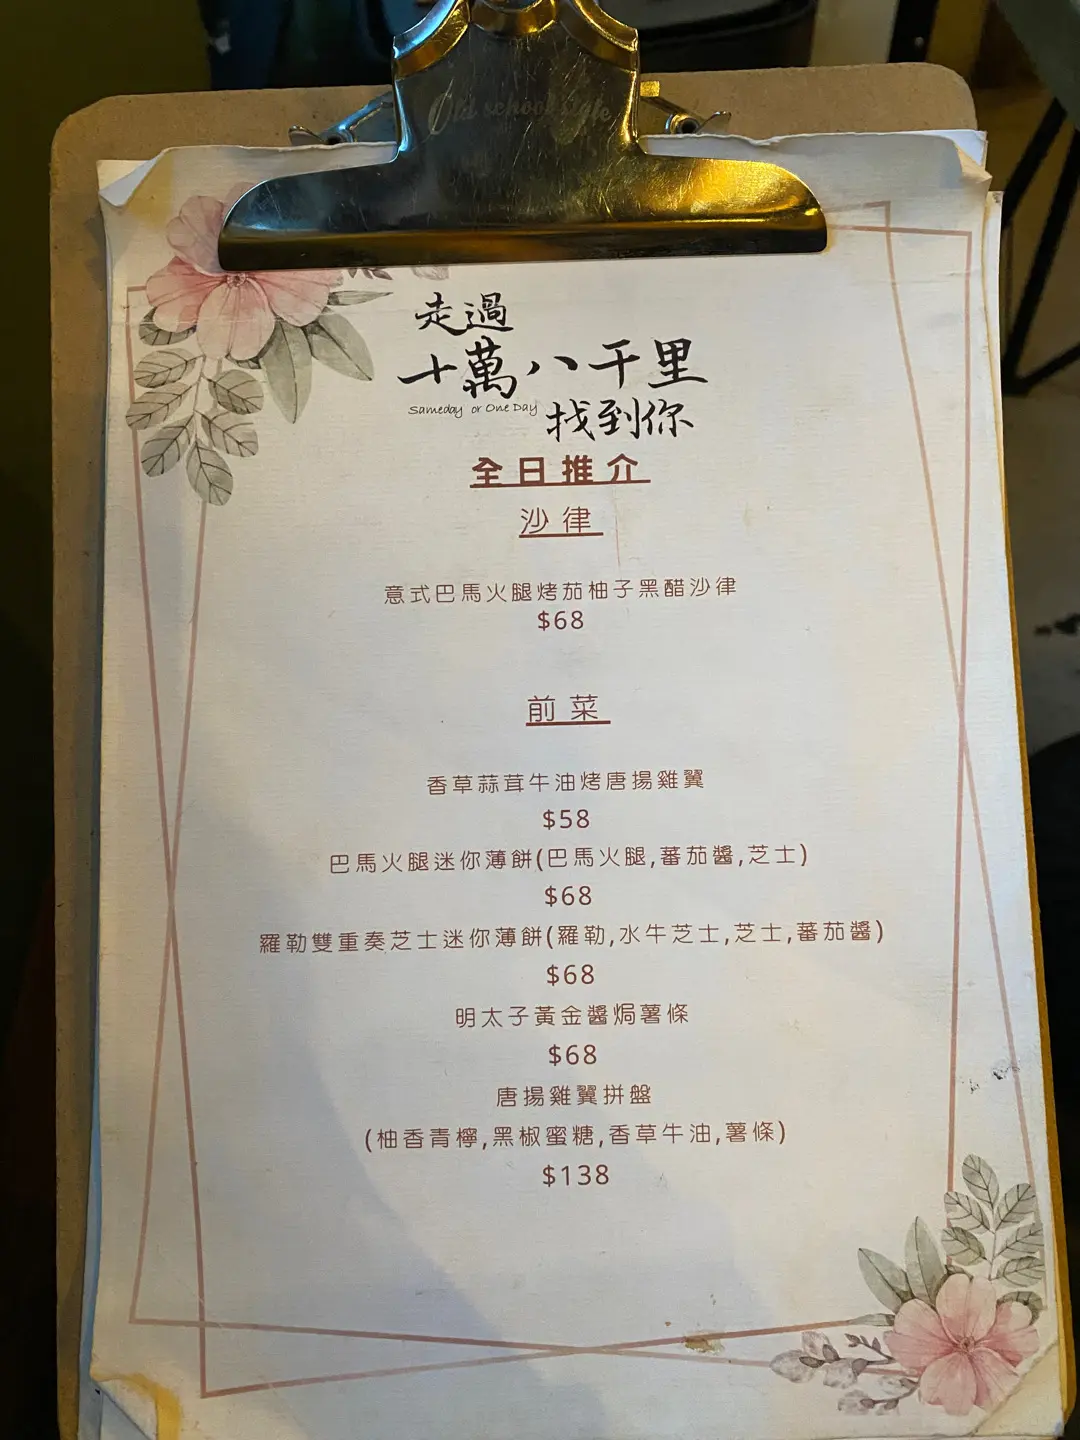 Old school style
走過
十萬八千里
Sameday or One Day
找到你
全日推介
沙律
意式巴馬火腿烤茄柚子黑醋沙律
$68
前菜
香草蒜茸牛油烤唐揚雞翼
$58
巴馬火腿迷你薄餅(巴馬火腿,蕃茄醬,芝士)
$68
羅勒雙重奏芝士迷你薄餅(羅勒,水牛芝士,芝士,蕃茄醬)
$68
明太子黃金醬焗薯條
$68
唐揚雞翼拼盤
(柚香青檸,黑椒蜜糖,香草牛油,薯條)
$138